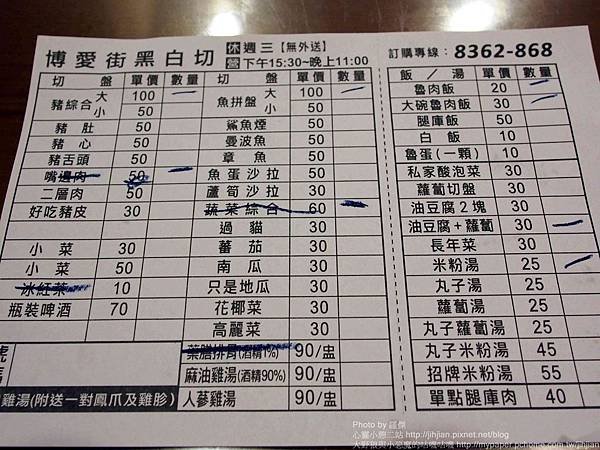 博愛街黑白切
休 週三【無外送】
營 下午15:30~晚上11:00
訂購專線：8362-868
切 盤 單價 數量
豬綜合 大 100
小 50
豬肚 50
豬心 50
豬舌頭 50
嘴邊肉 50
二層肉 50
好吃豬皮 30
小菜 30
小菜 50
冰紅茶 10
瓶裝啤酒 70
切 盤 單價 數量
魚拼盤 大 100
小 50
鯊魚煙 50
曼波魚 50
章魚 50
魚蛋沙拉 50
蘆筍沙拉 30
蔬菜綜合 60
過貓 30
蕃茄 30
南瓜 30
只是地瓜 30
花椰菜 30
高麗菜 30
藥膳排骨(酒精1%) 90/盅
麻油雞湯(酒精90%) 90/盅
雞湯(附送一對鳳爪及雞胗)
人蔘雞湯 90/盅
飯／湯 單價 數量
魯肉飯 20
大碗魯肉飯 30
腿庫飯 50
白飯 10
魯蛋(一顆) 10
私家酸泡菜 30
蘿蔔切盤 30
油豆腐2塊 30
油豆腐+蘿蔔 30
長年菜 30
米粉湯 25
丸子湯 25
蘿蔔湯 25
丸子蘿蔔湯 25
丸子米粉湯 45
招牌米粉湯 55
單點腿庫肉 40
心靈小憩二站 http://jihjian.pixnet.net/blog